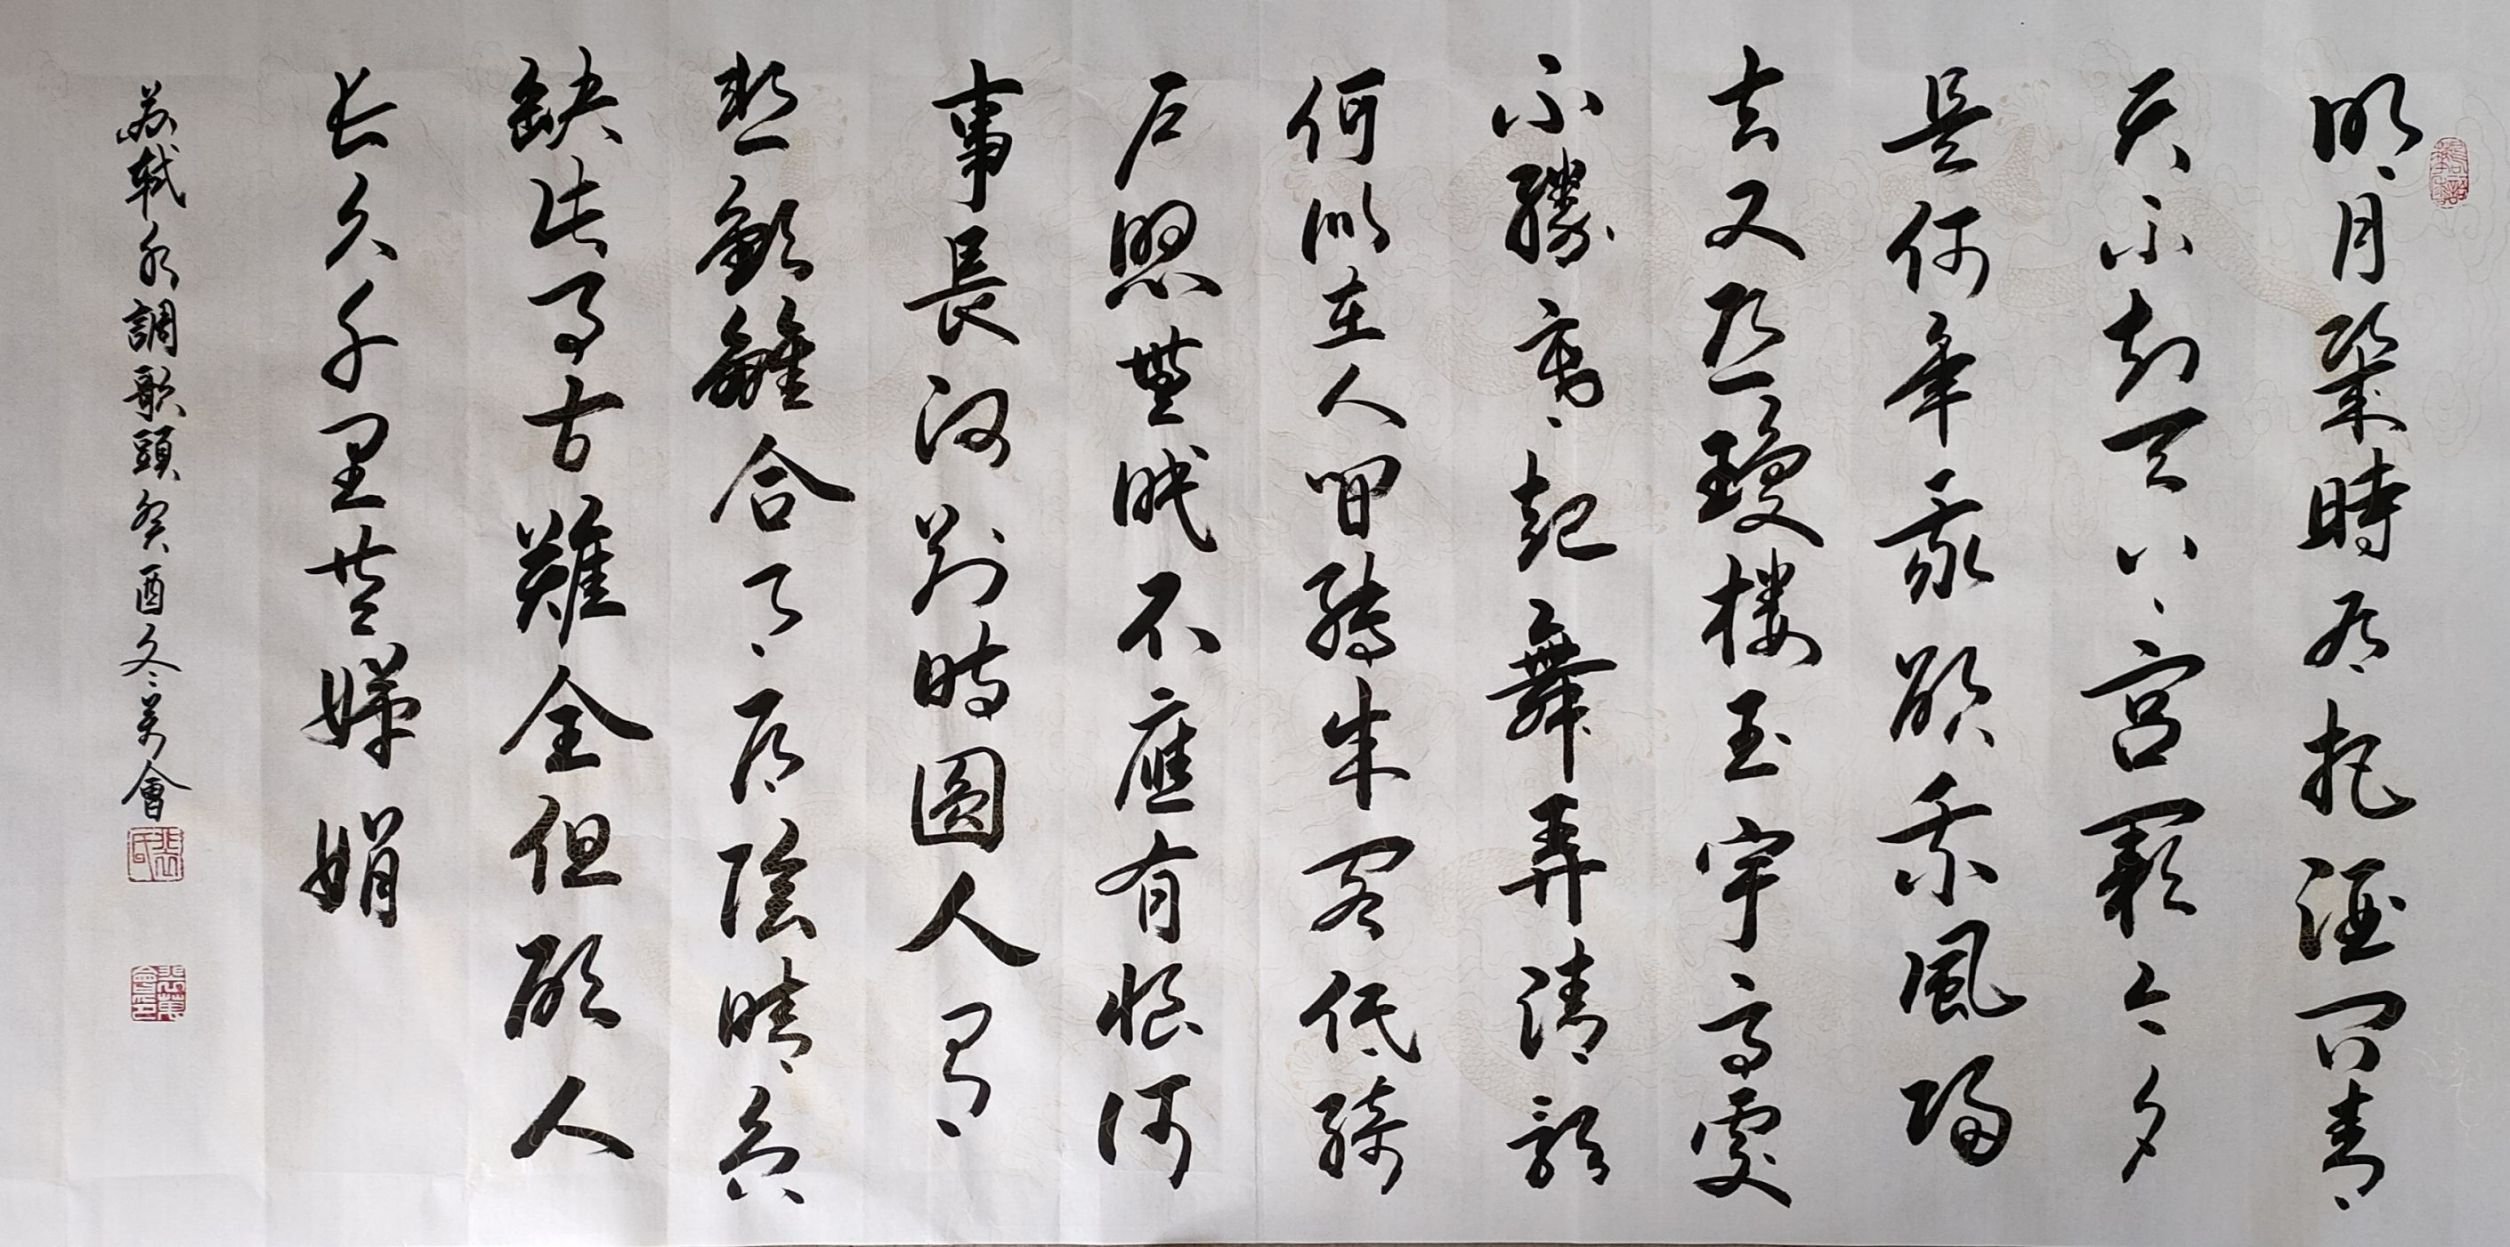 明月幾時有把酒問青
天不知天上宮闕今夕
是何年我欲乘風歸
去又恐瓊楼玉宇高處
不勝寒起舞弄清影
何似在人間轉朱閣低綺
戶照無眠不應有恨何
事長向别時圓人有
悲歡離合月有陰晴圓
缺此事古難全但願人
长久千里共嬋娟
蘇軾水調歌頭癸酉冬萬會
裴氏
裴萬會印